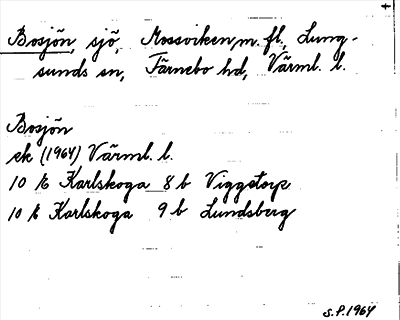 Bosjön, sjö, Mossviken m. fl., Lung-
sunds sn, Färnebo hd, Värml. l.
Bosjön
ek (1964) Värml. l.
10 E Karlskoga 8 b Viggetorp
10 E Karlskoga 9 b Lundsberg
S.P. 1964